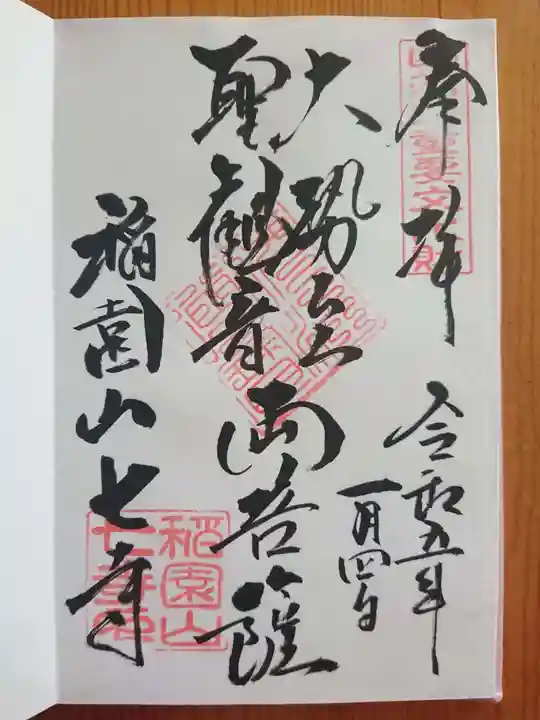 奉拝
令和五年
一月四日
大勢至
聖観音
両菩薩
稲園山七寺
稲園山
七寺印